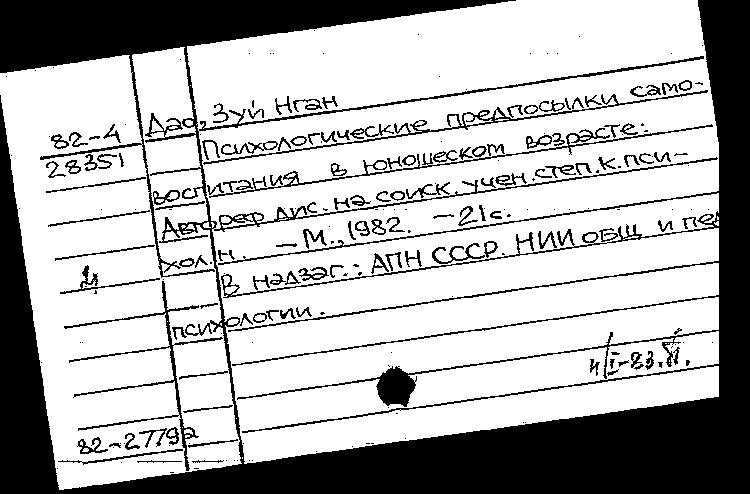 82-4
28351
Дао, Зуй Нган
Психологические предпосылки само-
воспитания в юношеском возрасте:
Автореф. дис. на соиск. учен. степ. к. пси-
хол. н. — М., 1982. — 21 с.
В надзаг.: АПН СССР. НИИ общ и пед
психологии.
I-83.
82-27792